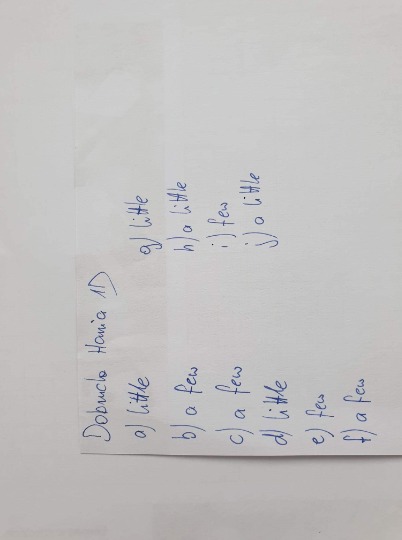 Dobrucka Hania 1D
a) little
b) a few
c) a few
d) little
e) few
f) a few
g) little
h) a little
i) few
j) a little